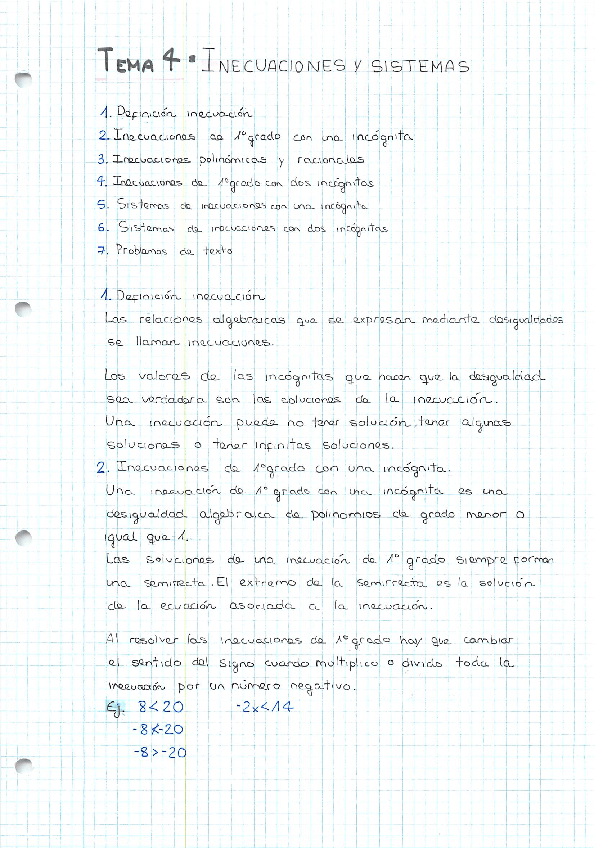 TEMA 4 • INECUACIONES Y SISTEMAS
1. Definición inecuación
2. Inecuaciones de 1º grado con una incógnita
3. Inecuaciones polinómicas y racionales
4. Inecuaciones de 1º grado con dos incógnitas
5. Sistemas de inecuaciones con una incógnita
6. Sistemas de inecuaciones con dos incógnitas
7. Problemas de texto
1. Definición inecuación
Las relaciones algebraicas que se expresan mediante desigualdades
se llaman inecuaciones.
Los valores de las incógnitas que hacen que la desigualdad
sea verdadera son las soluciones de la inecuación.
Una inecuación puede no tener solución, tener algunas
soluciones o tener infinitas soluciones.
2. Inecuaciones de 1º grado con una incógnita.
Una inecuación de 1º grado con una incógnita es una
desigualdad algebraica de polinomios de grado menor o
igual que 1.
Las soluciones de una inecuación de 1º grado siempre forman
una semirrecta. El extremo de la semirrecta es la solución
de la ecuación asociada a la inecuación.
Al resolver las inecuaciones de 1º grado hay que cambiar
el sentido del signo cuando multiplico o divido toda la
inecuación por un número negativo.
Ej. 8 < 20 -2x < 14
-8 < -20
-8 > -20